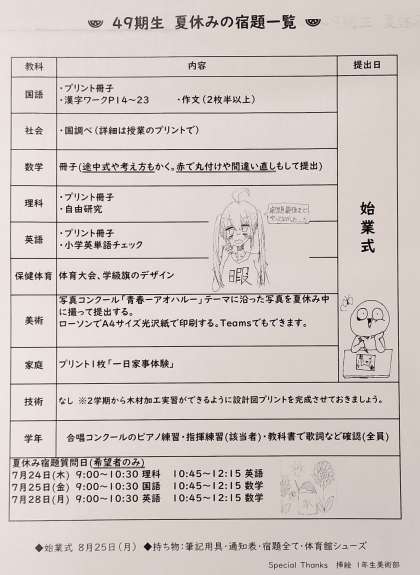 49期生 夏休みの宿題一覧
教科 内容 提出日
国語 ・プリント冊子
・漢字ワークP14～23 ・作文(2枚半以上)
社会 ・国調べ(詳細は授業のプリントで)
数学 冊子(途中式や考え方もかく。赤で丸付けや間違い直しもして提出)
理科 ・プリント冊子
・自由研究
英語 ・プリント冊子
・小学英単語チェック
保健体育 体育大会、学級旗のデザイン
暇
始業式
美術 写真コンクール「青春ーアオハルー」テーマに沿った写真を夏休み中
に撮って提出する。
ローソンでA4サイズ光沢紙で印刷する。Teamsでもできます。
家庭 プリント1枚「一日家事体験」
技術 なし ※2学期から木材加工実習ができるように設計図プリントを完成させておきましょう。
学年 合唱コンクールのピアノ練習・指揮練習(該当者)・教科書で歌詞など確認(全員)
夏休み宿題質問日(希望者のみ)
7月24日(木) 9:00～10:30 理科 10:45～12:15 英語
7月25日(金) 9:00～10:30 国語 10:45～12:15 数学
7月28日(月) 9:00～10:30 英語 10:45～12:15 数学
◆始業式 8月25日(月) ◆持ち物:筆記用具・通知表・宿題全て・体育館シューズ
Special Thanks 挿絵 1年生美術部